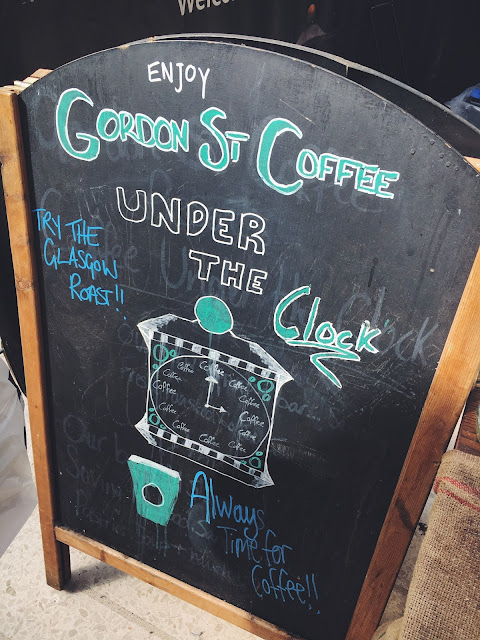 Welco
ENJOY
GORDON ST COFFEE
UNDER
THE
CLOCK
TRY THE
GLASGOW
ROAST!!
Coffee
Coffee
Coffee
Coffee
Coffee
Coffee
Coffee
Coffee
Coffee
Coffee
Coffee
Coffee
Always
Time for
Coffee!!